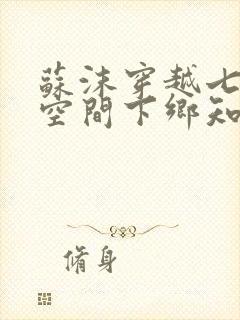 蘇沫穿越七
空間下鄉知
脩身